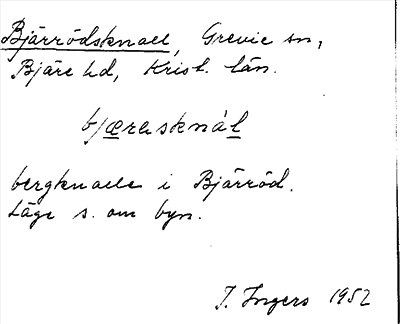 Bjärrödsknall, Grevie sn,
Bjäre hd, Krist. län.
bjærasknál
bergknalle i Bjärröd.
Läge s. om byn.
I. Ingers 1952